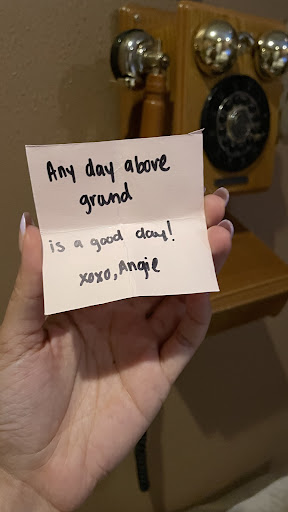 Any day above
grand
is a good day!
xoxo, Angie